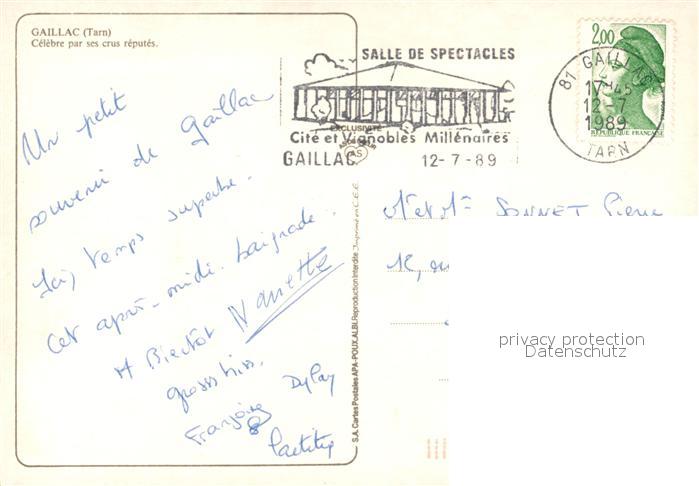 GAILLAC (Tarn)
Célèbre par ses crus réputés.
SALLE DE SPECTACLES
Cité et Vignobles Millénaires
GAILLAC 12-7-89
EXCLUSIVITÉ
AS
2,00
RÉPUBLIQUE FRANÇAISE
81 GAILLAC
17H45
12-7
1989
TARN
Un petit
souvenir de Gaillac
Ici temps superbe.
Cet après-midi baignade.
A Bientôt Nanette
gross biss.
Françoise
Laetitia
S.A. Cartes Postales APA-POUX, ALBI, Reproduction Interdite. Imprimé en C.E.E.
Mr et Mme SONNET Pierre
privacy protection
Datenschutz